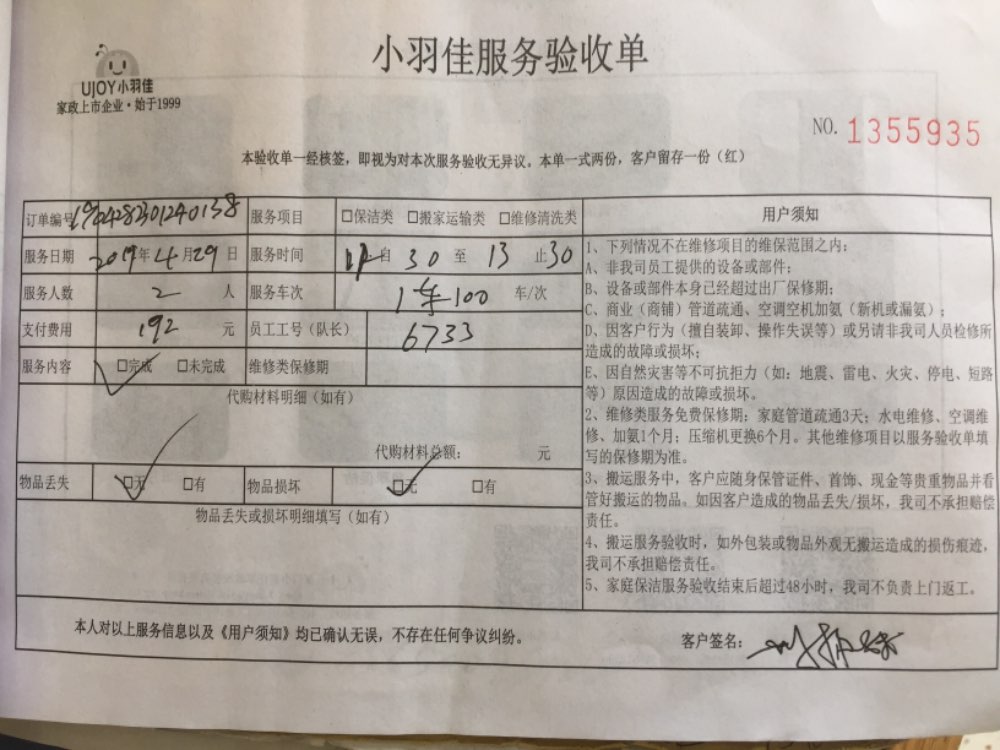 小羽佳服务验收单
UJOY小羽佳
家政上市企业·始于1999
NO. 1355935
本验收单一经核签，即视为对本次服务验收无异议。本单一式两份，客户留存一份（红）
订单编号 190428301240138 服务项目 □保洁类 □搬家运输类 □维修清洗类
服务日期 2019年4月29日 服务时间 11自30至13止30
服务人数 2人 服务车次 1车100 车/次
支付费用 192元 员工工号（队长） 6733
服务内容 □完成 □未完成 维修类保修期
代购材料明细（如有）
代购材料总额： 元
物品丢失 □无 □有 物品损坏 □无 □有
物品丢失或损坏明细填写（如有）
用户须知
1、下列情况不在维修项目的维保范围之内：
A、非我司员工提供的设备或部件；
B、设备或部件本身已经超过出厂保修期；
C、商业（商铺）管道疏通、空调空机加氨（新机或漏氨）；
D、因客户行为（擅自装卸、操作失误等）或另请非我司人员检修所
造成的故障或损坏；
E、因自然灾害等不可抗拒力（如：地震、雷电、火灾、停电、短路
等）原因造成的故障或损坏。
2、维修类服务免费保修期：家庭管道疏通3天；水电维修、空调维
修、加氨1个月；压缩机更换6个月。其他维修项目以服务验收单填
写的保修期为准。
3、搬运服务中，客户应随身保管证件、首饰、现金等贵重物品并看
管好搬运的物品。如因客户造成的物品丢失/损坏，我司不承担赔偿
责任。
4、搬运服务验收时，如外包装或物品外观无搬运造成的损伤痕迹，
我司不承担赔偿责任。
5、家庭保洁服务验收结束后超过48小时，我司不负责上门返工。
本人对以上服务信息以及《用户须知》均已确认无误，不存在任何争议纠纷。
客户签名：